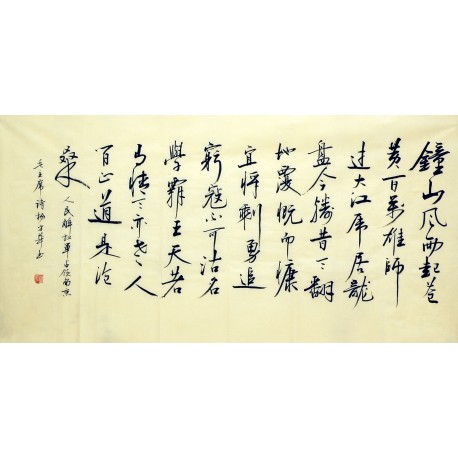 鐘山风雨起苍
黄百萬雄師
过大江虎居龍
盘今勝昔天翻
地覆慨而慷
宜将剩勇追
窮寇不可沽名
學霸王天若
有情天亦老人
间正道是沧
桑
人民解放军占领南京
毛主席诗